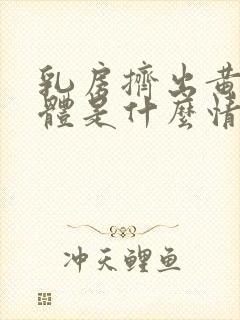 乳房擠出黃
體是什麼情
冲天鲤鱼